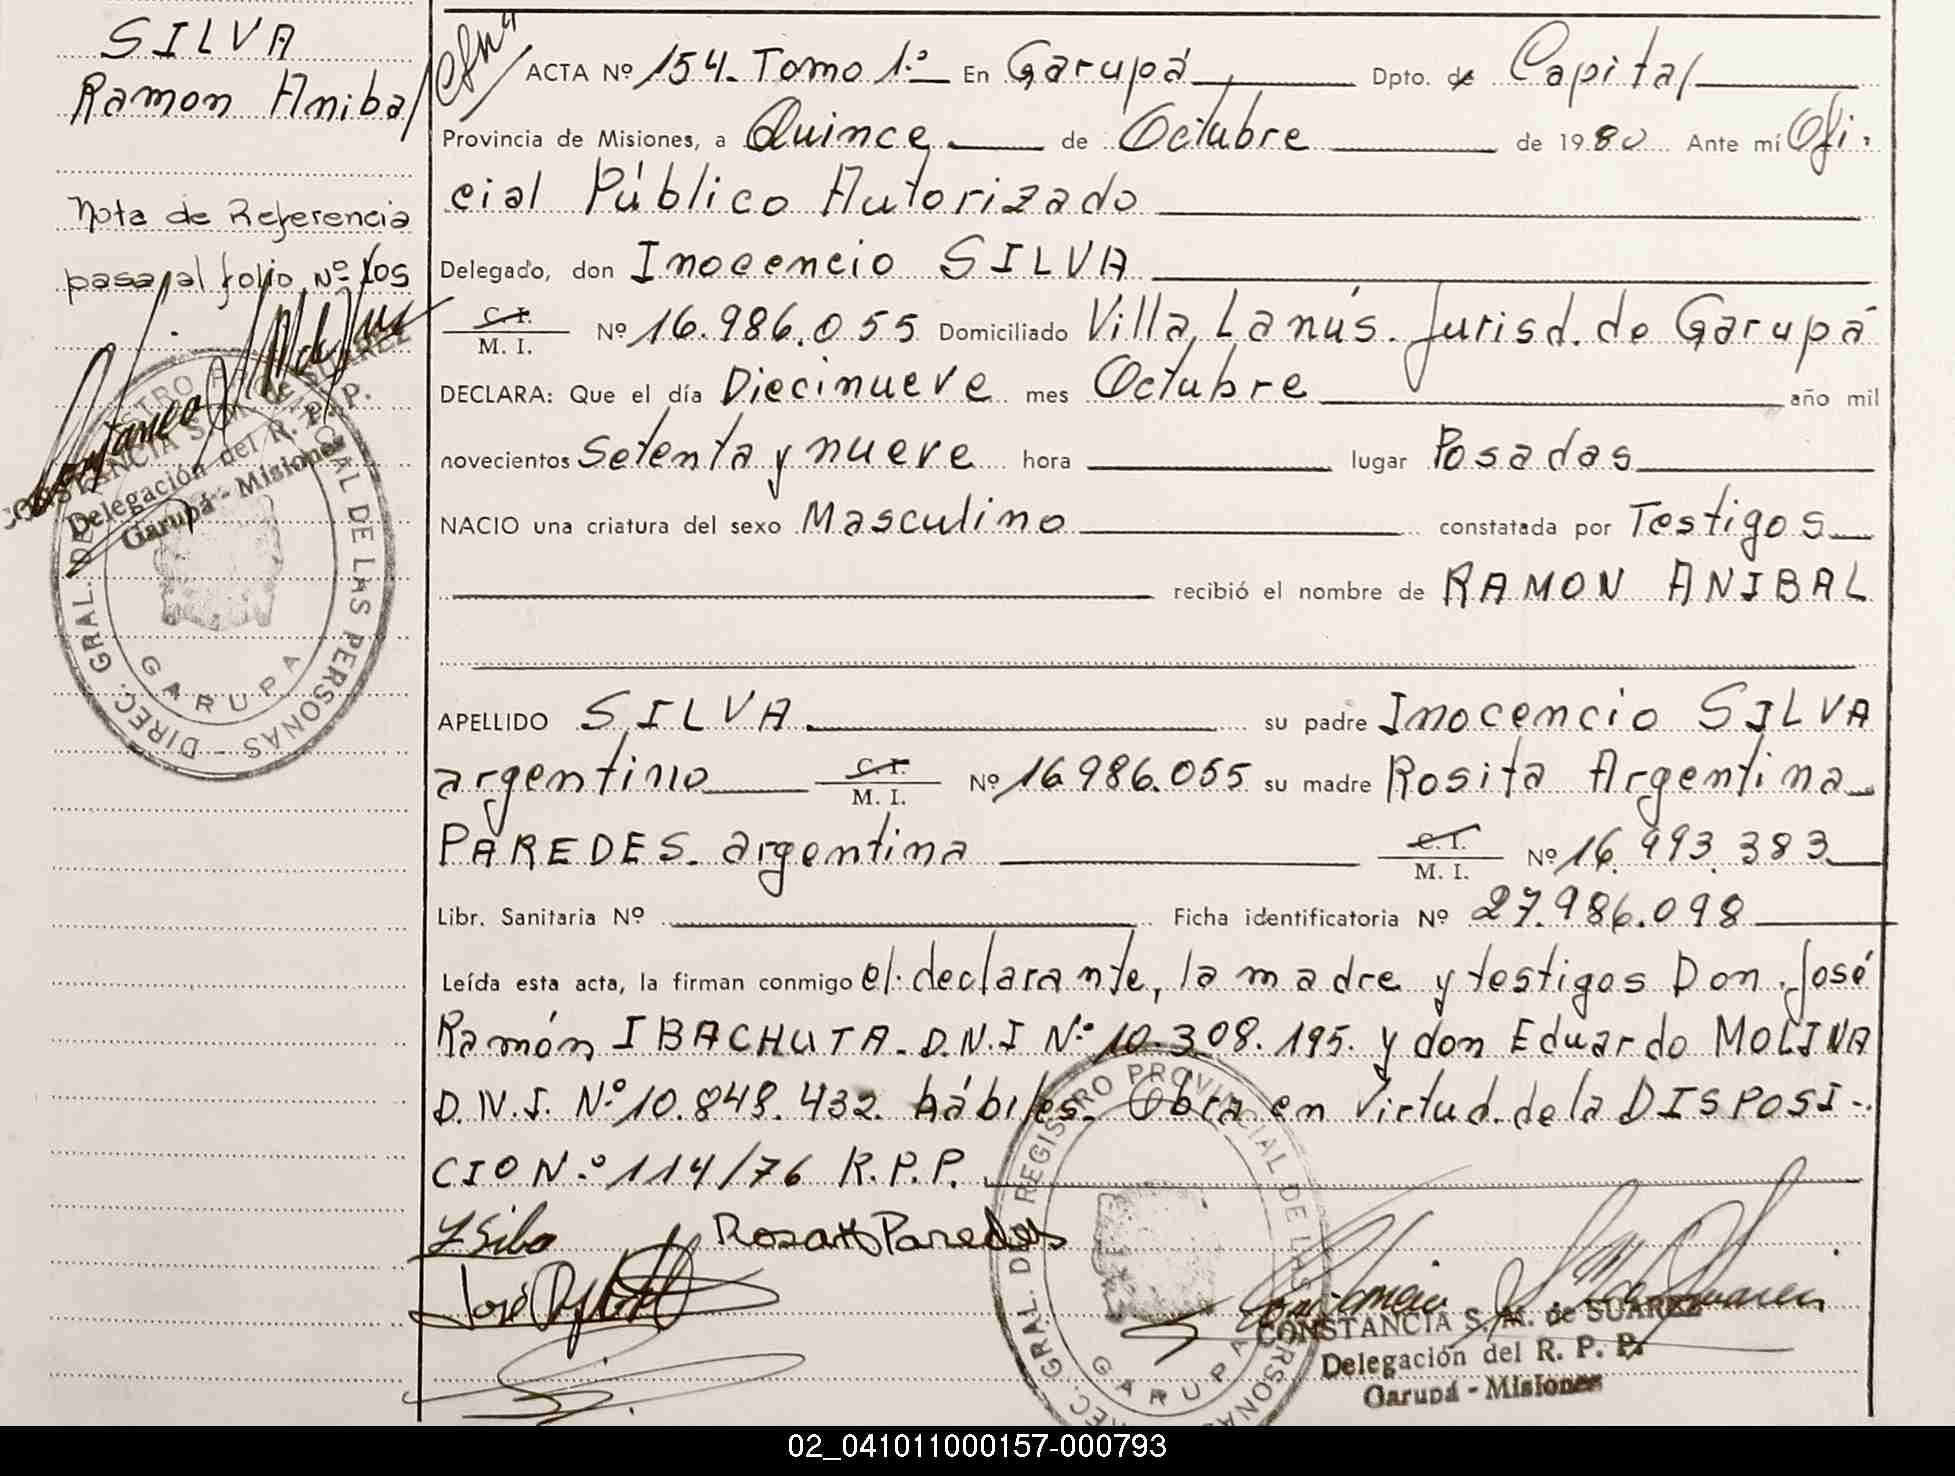 SILVA
Ramon Anibal
Nota de Referencia
pasa al folio Nº 105
CONSTANCIA S. M. de SUAREZ
Delegación del R. P. P.
Garupá - Misiones
DIREC. GRAL. DE REGISTRO PROVINCIAL DE LAS PERSONAS
GARUPA
ACTA Nº 154. Tomo 1.º En Garupá Dpto. de Capital
Provincia de Misiones, a Quince de Octubre de 1980 Ante mí Ofi.
cial Público Autorizado
Delegado, don Inocencio SILVA
C. I.
M. I. Nº 16.986.055 Domiciliado Villa Lanús. Jurisd. de Garupá
DECLARA: Que el día Diecinueve mes Octubre año mil
novecientos setenta y nueve hora lugar Posadas
NACIO una criatura del sexo Masculino constatada por Testigos
recibió el nombre de RAMON ANIBAL
APELLIDO SILVA su padre Inocencio SILVA
argentino C. I.
M. I. Nº 16.986.055 su madre Rosita Argentina
PAREDES. argentina C. I.
M. I. Nº 16.993.383
Libr. Sanitaria Nº Ficha identificatoria Nº 27.986.098
Leída esta acta, la firman conmigo el declarante, la madre y testigos Don José
Ramón IBACHUTA. D.N.I Nº 10.308.195. y don Eduardo MOLINA
D.N.I. Nº 10.848.432 hábiles. Obra en virtud de la DISPOSI-
CION Nº 114/76 R.P.P.
Paredes
José
DIREC. GRAL. DE REGISTRO PROVINCIAL DE LAS PERSONAS
GARUPA
CONSTANCIA S. M. de SUAREZ
Delegación del R. P. P.
Garupá - Misiones
02_041011000157-000793